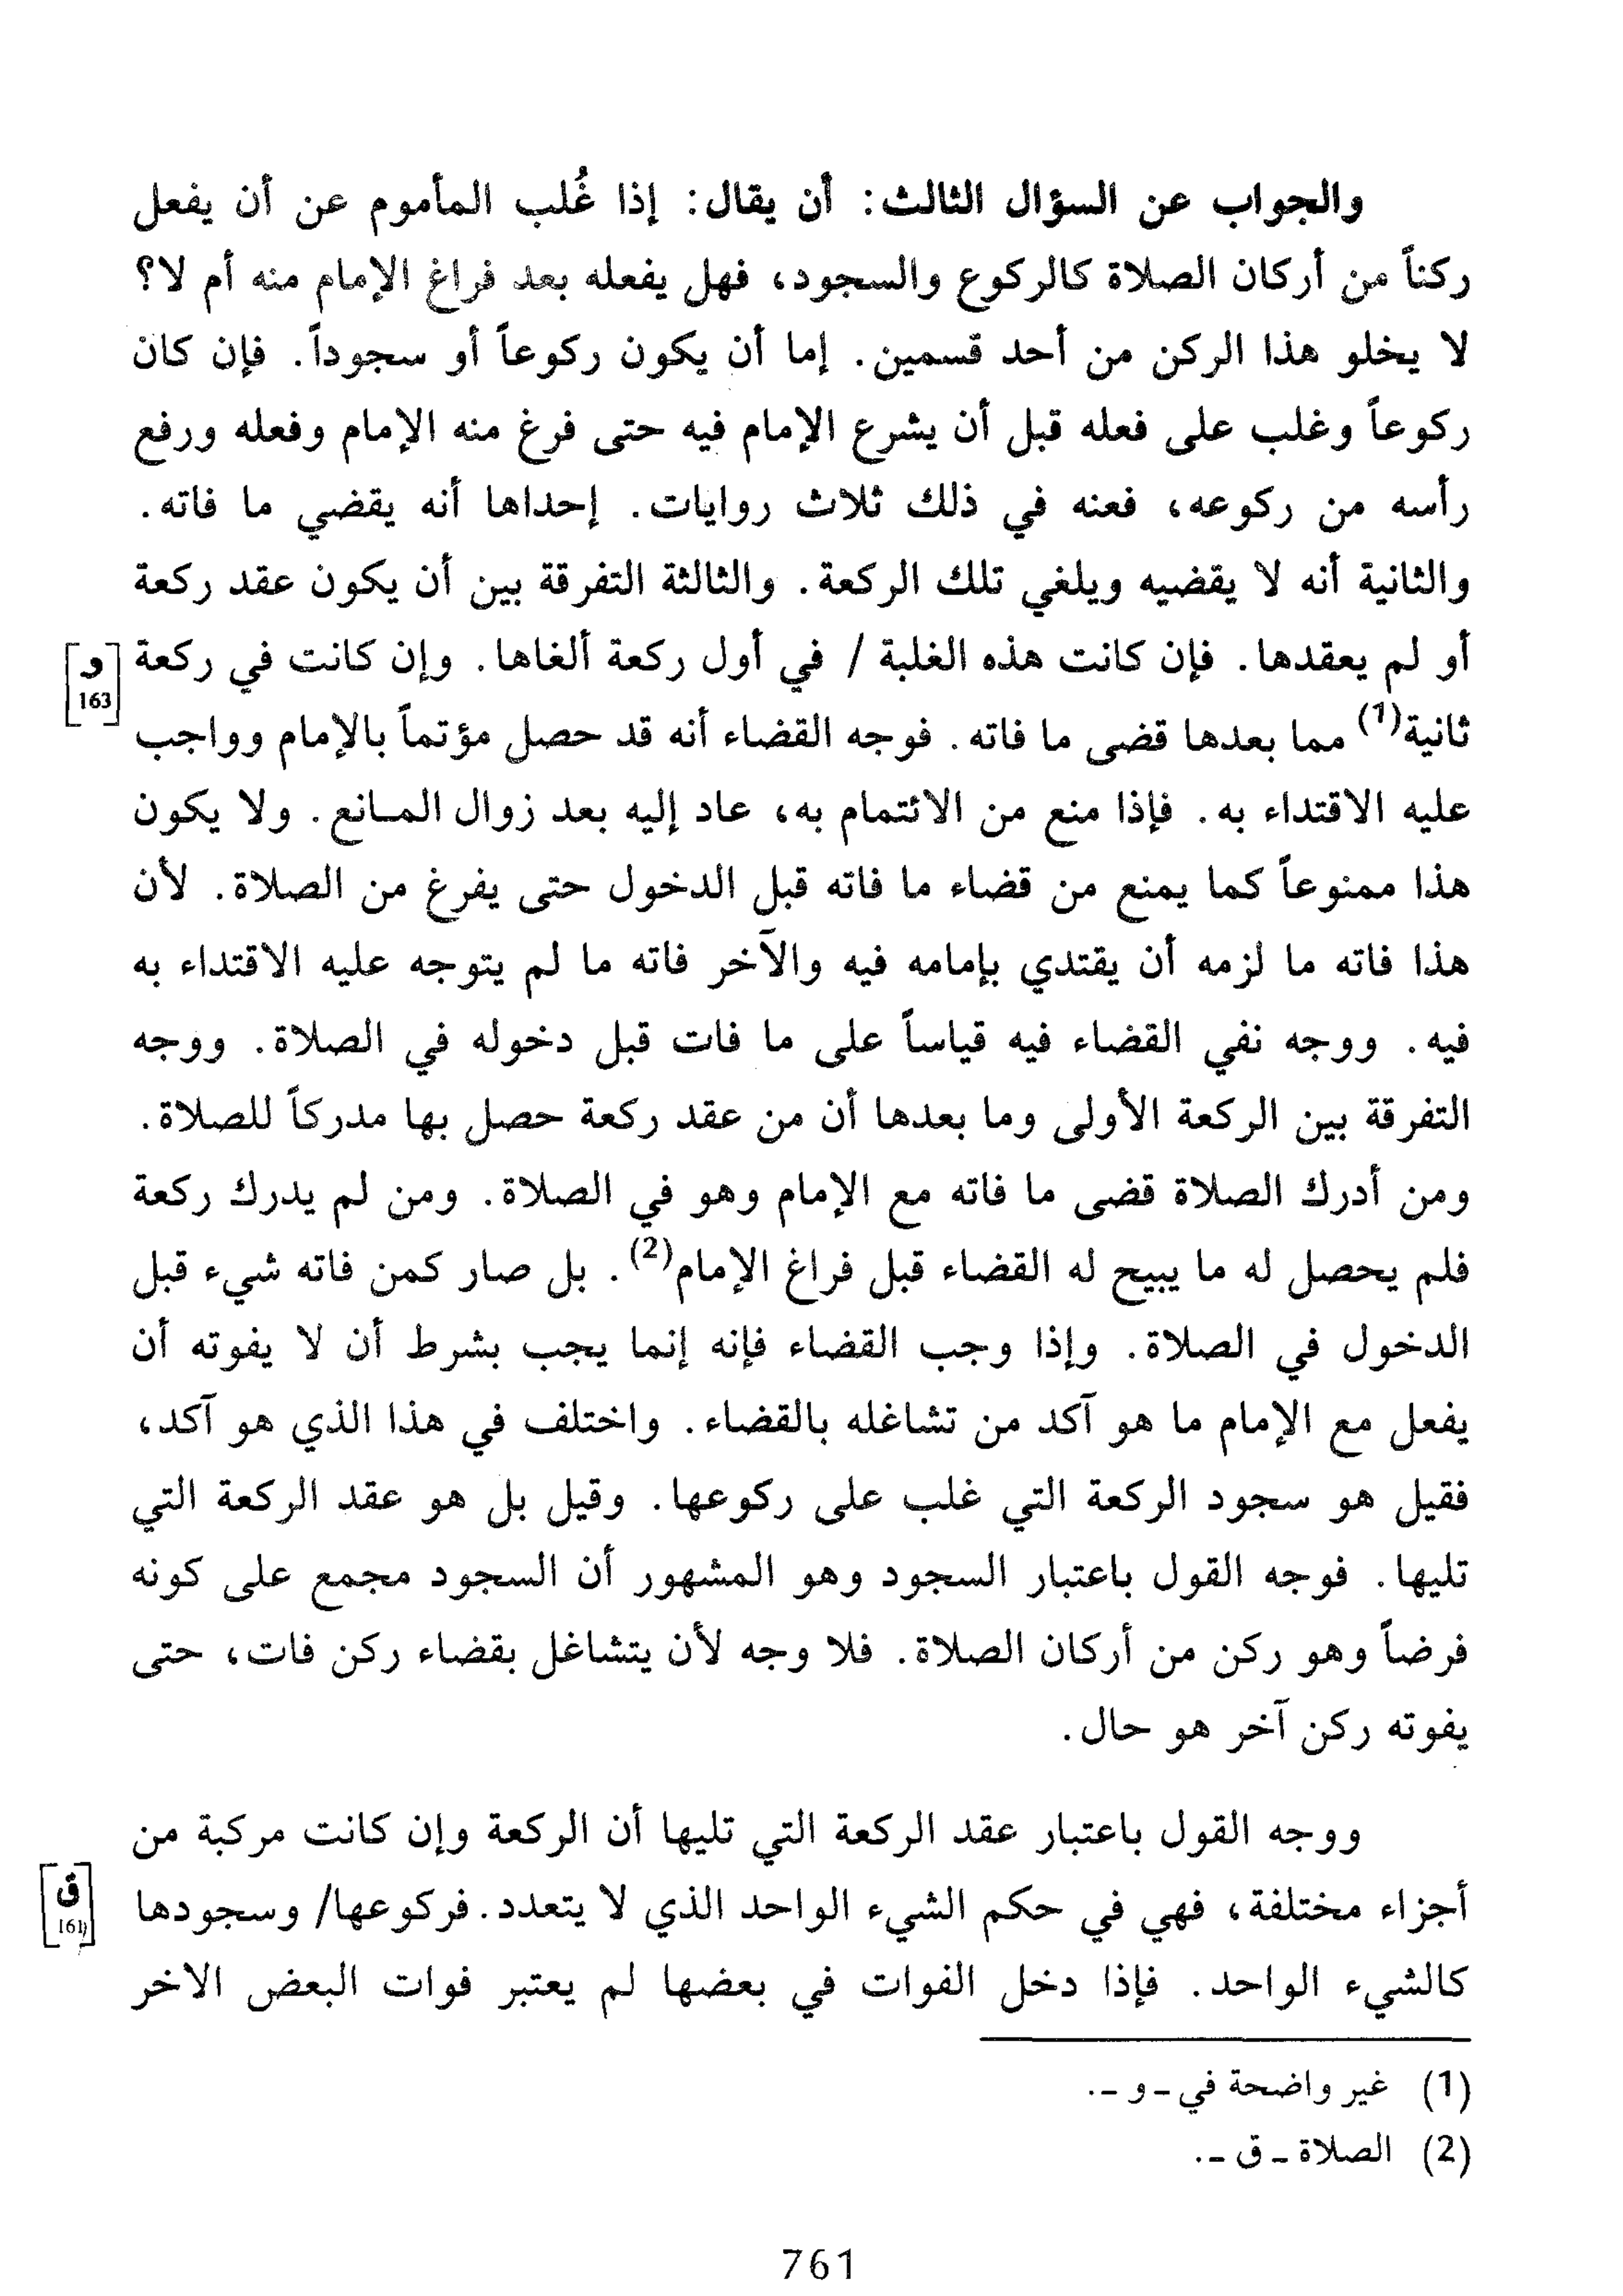 والجواب عن السؤال الثالث: أن يقال: إذا غُلب المأموم عن أن يفعل
ركناً من أركان الصلاة كالركوع والسجود، فهل يفعله بعد فراغ الإمام منه أم لا؟
لا يخلو هذا الركن من أحد قسمين. إما أن يكون ركوعاً أو سجوداً. فإن كان
ركوعاً وغلب على فعله قبل أن يشرع الإمام فيه حتى فرغ منه الإمام وفعله ورفع
رأسه من ركوعه، فعنه في ذلك ثلاث روايات. إحداها أنه يقضي ما فاته.
والثانية أنه لا يقضيه ويلغي تلك الركعة. والثالثة التفرقة بين أن يكون عقد ركعة
أو لم يعقدها. فإن كانت هذه الغلبة / في أول ركعة ألغاها. وإن كانت في ركعة
[و 163]
ثانية(1) مما بعدها قضى ما فاته. فوجه القضاء أنه قد حصل مؤتماً بالإمام وواجب
عليه الاقتداء به. فإذا منع من الائتمام به، عاد إليه بعد زوال المـانع. ولا يكون
هذا ممنوعاً كما يمنع من قضاء ما فاته قبل الدخول حتى يفرغ من الصلاة. لأن
هذا فاته ما لزمه أن يقتدي بإمامه فيه والآخر فاته ما لم يتوجه عليه الاقتداء به
فيه. ووجه نفي القضاء فيه قياساً على ما فات قبل دخوله في الصلاة. ووجه
التفرقة بين الركعة الأولى وما بعدها أن من عقد ركعة حصل بها مدركاً للصلاة.
ومن أدرك الصلاة قضى ما فاته مع الإمام وهو في الصلاة. ومن لم يدرك ركعة
فلم يحصل له ما يبيح له القضاء قبل فراغ الإمام(2). بل صار كمن فاته شيء قبل
الدخول في الصلاة. وإذا وجب القضاء فإنه إنما يجب بشرط أن لا يفوته أن
يفعل مع الإمام ما هو آكد من تشاغله بالقضاء. واختلف في هذا الذي هو آكد،
فقيل هو سجود الركعة التي غلب على ركوعها. وقيل بل هو عقد الركعة التي
تليها. فوجه القول باعتبار السجود وهو المشهور أن السجود مجمع على كونه
فرضاً وهو ركن من أركان الصلاة. فلا وجه لأن يتشاغل بقضاء ركن فات، حتى
يفوته ركن آخر هو حال.
ووجه القول باعتبار عقد الركعة التي تليها أن الركعة وإن كانت مركبة من
أجزاء مختلفة، فهي في حكم الشيء الواحد الذي لا يتعدد. فركوعها/ وسجودها
[ق 161]
كالشيء الواحد. فإذا دخل الفوات في بعضها لم يعتبر فوات البعض الاخر
(1) غير واضحة في ـ و ـ.
(2) الصلاة ـ ق ـ.
761